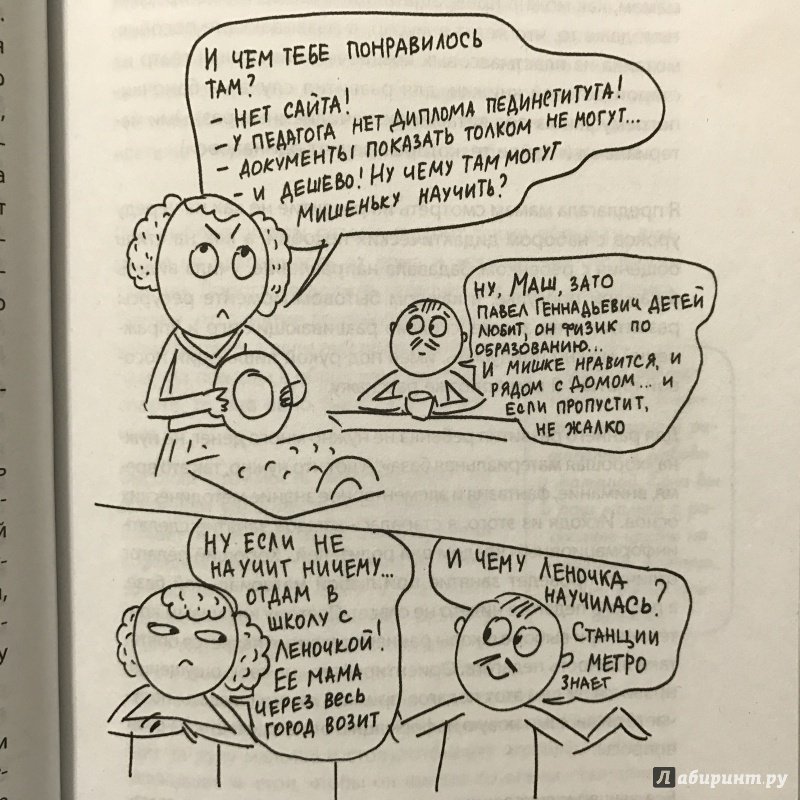 И ЧЕМ ТЕБЕ ПОНРАВИЛОСЬ
ТАМ?
- НЕТ САЙТА!
- У ПЕДАГОГА НЕТ ДИПЛОМА ПЕДИНСТИТУТА!
- ДОКУМЕНТЫ ПОКАЗАТЬ ТОЛКОМ НЕ МОГУТ...
- И ДЕШЕВО! НУ ЧЕМУ ТАМ МОГУТ
МИШЕНЬКУ НАУЧИТЬ?
НУ, МАШ, ЗАТО
ПАВЕЛ ГЕННАДЬЕВИЧ ДЕТЕЙ
ЛЮБИТ, ОН ФИЗИК ПО
ОБРАЗОВАНИЮ...
И МИШКЕ НРАВИТСЯ, И
РЯДОМ С ДОМОМ... И
ЕСЛИ ПРОПУСТИТ,
НЕ ЖАЛКО
НУ ЕСЛИ НЕ
НАУЧИТ НИЧЕМУ...
ОТДАМ В
ШКОЛУ С
ЛЕНОЧКОЙ!
ЕЕ МАМА
ЧЕРЕЗ ВЕСЬ
ГОРОД ВОЗИТ
И ЧЕМУ ЛЕНОЧКА
НАУЧИЛАСЬ?
СТАНЦИИ
МЕТРО
ЗНАЕТ
Лабиринт.ру